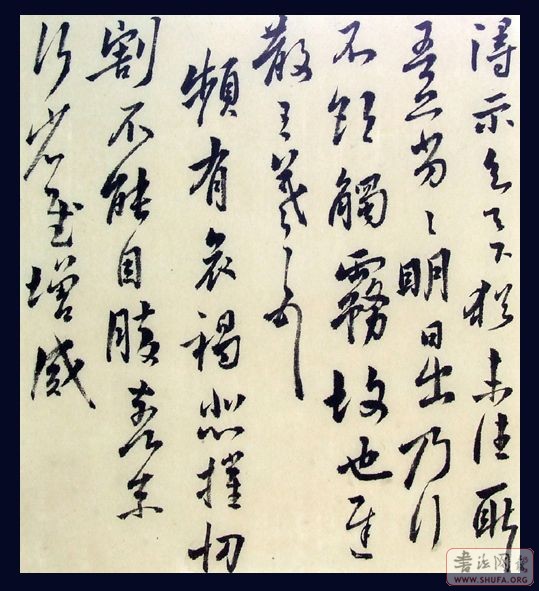 得示知足下猶未佳耿
吾亦劣々明日出乃行
不欲觸霧故也遲
散王羲之頓首
頻有哀禍悲摧切
割不能自勝奈何奈
何省慰增感
WWW.SHUFA.ORG